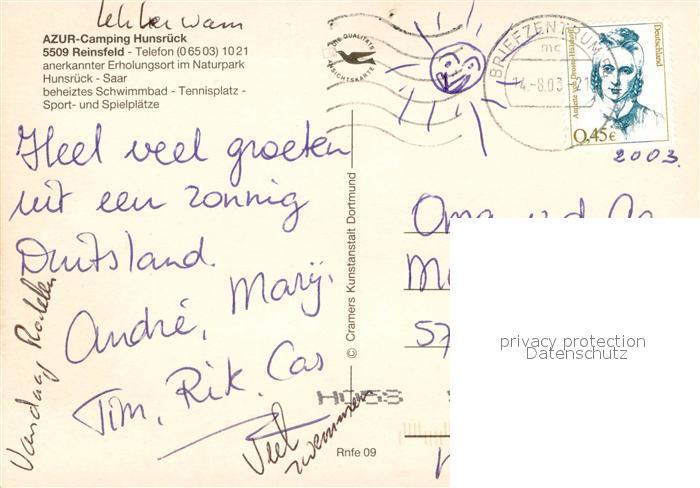 lekker warm
AZUR-Camping Hunsrück
5509 Reinsfeld - Telefon (0 65 03) 10 21
anerkannter Erholungsort im Naturpark
Hunsrück - Saar
beheiztes Schwimmbad - Tennisplatz -
Sport- und Spielplätze
DIE QUALITÄTS
ANSICHTSKARTE
BRIEFZENTRUM
mc
14.-8.03-21
Annette von Droste-Hülshoff
Deutschland
0,45€
2003.
Heel veel groeten
uit een zonnig
Duitsland.
André, Marij,
Tim, Rik, Cas
Vandaag
Veel
zwemmen
© Cramers Kunstanstalt Dortmund
Rnfe 09
Oma
57
privacy protection
Datenschutz